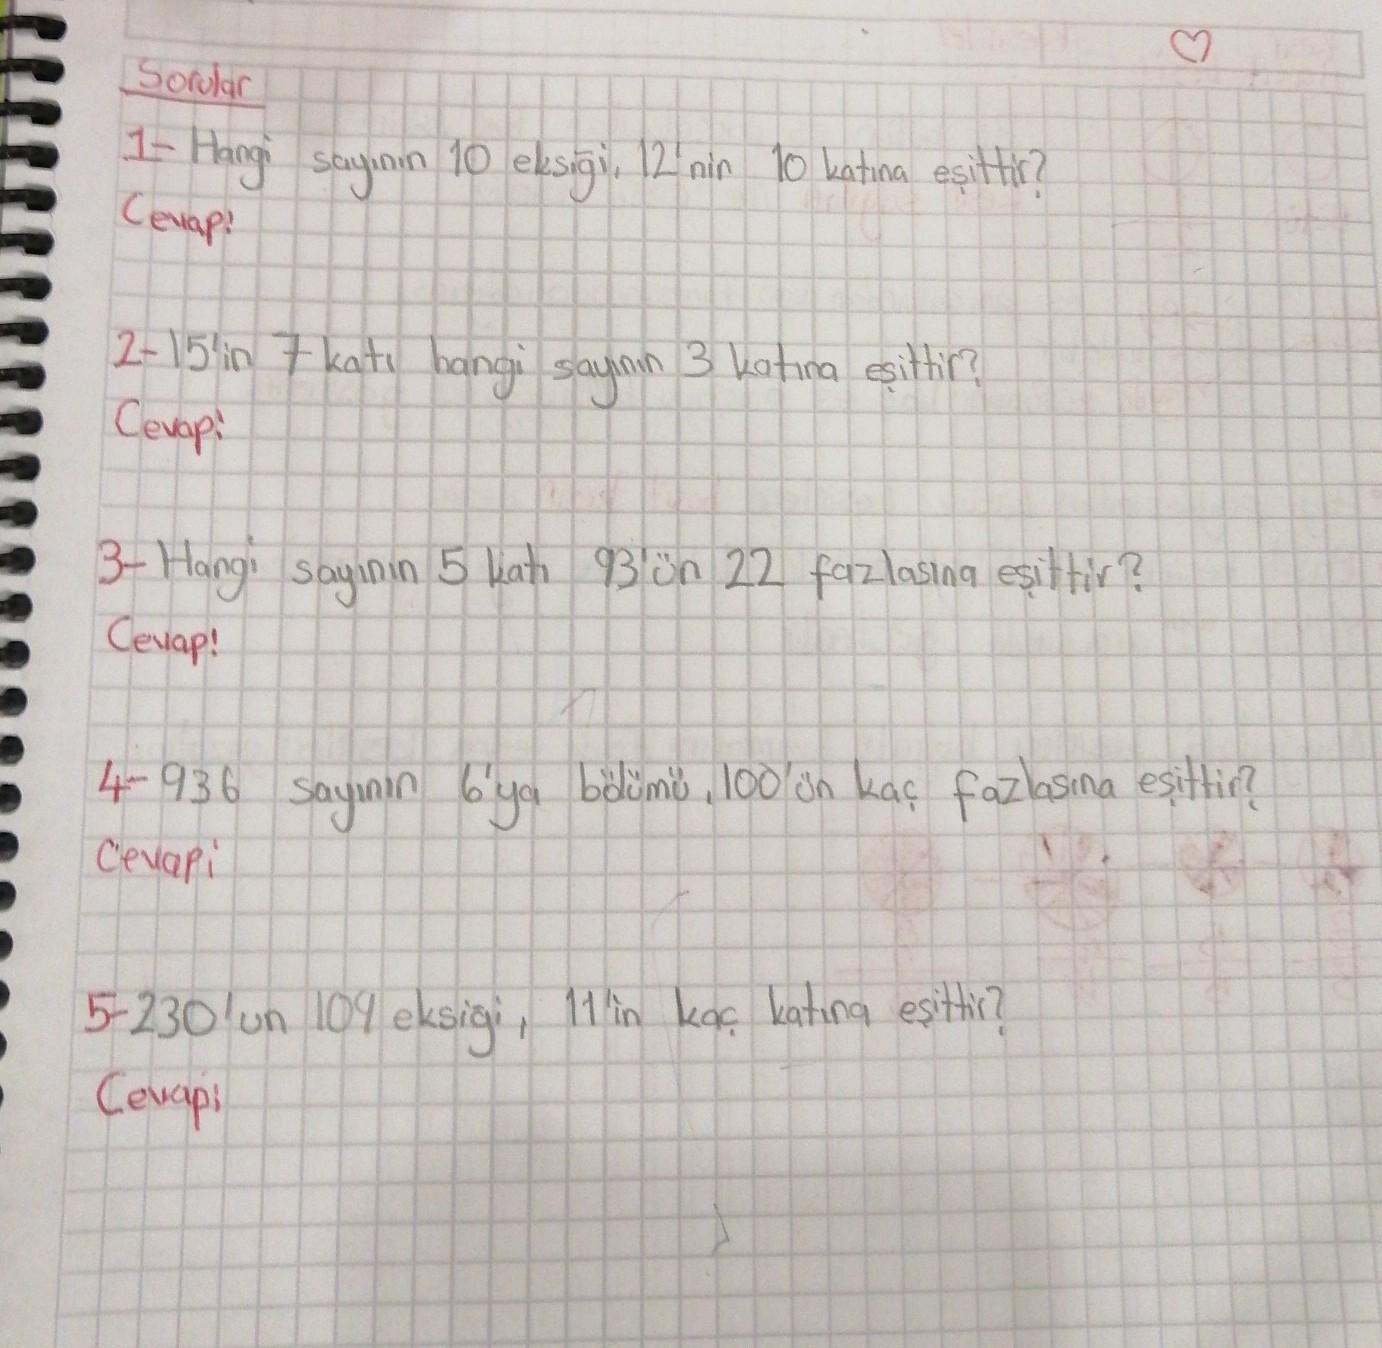 Sorular
1- Hangi sayının 10 eksiği, 12'nin 10 katına eşittir?
Cevap:
2- 15'in 7 katı hangi sayının 3 katına eşittir?
Cevap:
3- Hangi sayının 5 katı 93'ün 22 fazlasına eşittir?
Cevap:
4- 936 sayının 6'ya bölümü, 100'ün kaç fazlasına eşittir?
Cevap:
5- 230'un 109 eksigi, 11'in kaç katına eşittir?
Cevap: